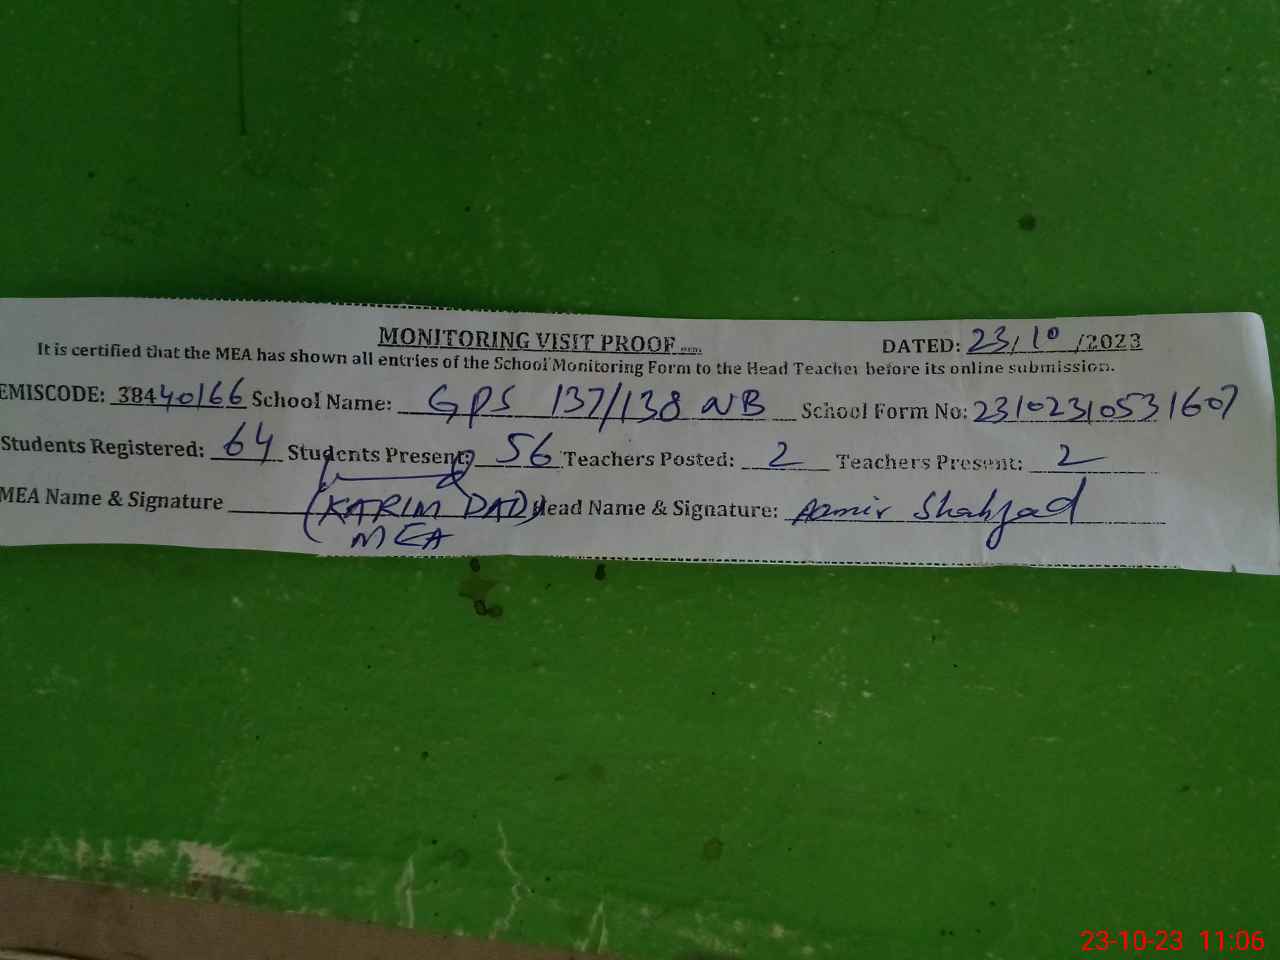 MONITORING VISIT PROOF
DATED: 23/10/2023
It is certified that the MEA has shown all entries of the School Monitoring Form to the Head Teacher before its online submission.
EMISCODE: 38440166 School Name: GPS 137/138 NB School Form No: 23102310531607
Students Registered: 64 Students Present: 56 Teachers Posted: 2 Teachers Present: 2
MEA Name & Signature (KARIM DAD) Head Name & Signature: Shahzad
MEA
23-10-23 11:06